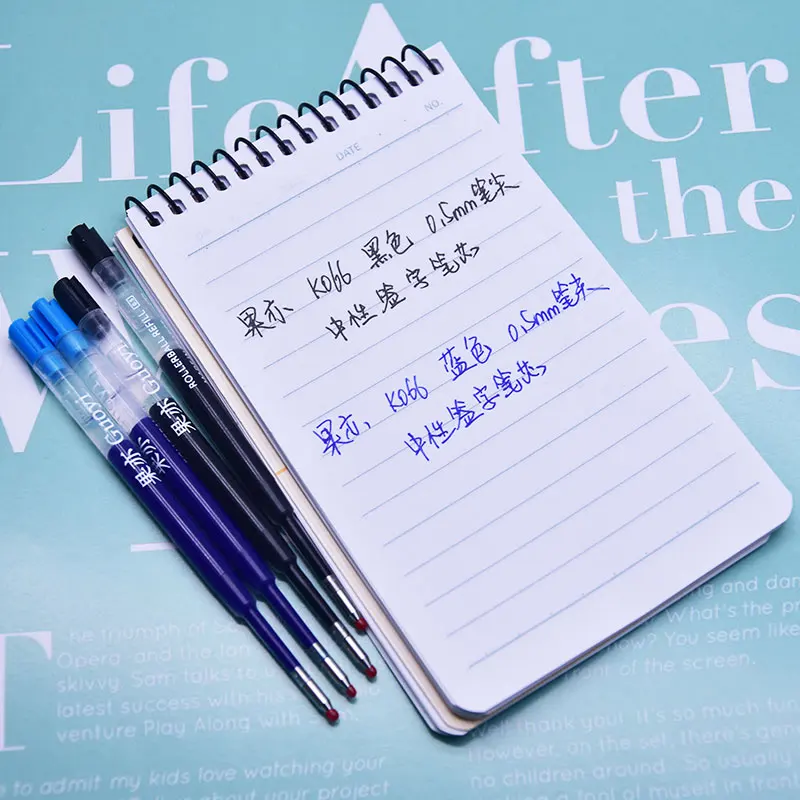 Life After
the
DATE
NO.
果亦 K066 黑色 0.5mm笔尖
中性签字笔芯
果亦 K066 蓝色 0.5mm笔尖
中性签字笔芯
ROLLERBALL REFILL
果亦 Guoyi
果亦 Guoyi
The triumph of Sam
Opera and the
skivvy Sam talks to
latest success with his
venture Play Along with
to admit my kids love watching your
and dan
What's the pr
now? You seem like
front of the screen.
Well thank you! It's so much fun
However, on the set, there's gene
no children around. So usually
a fool of myself in front of